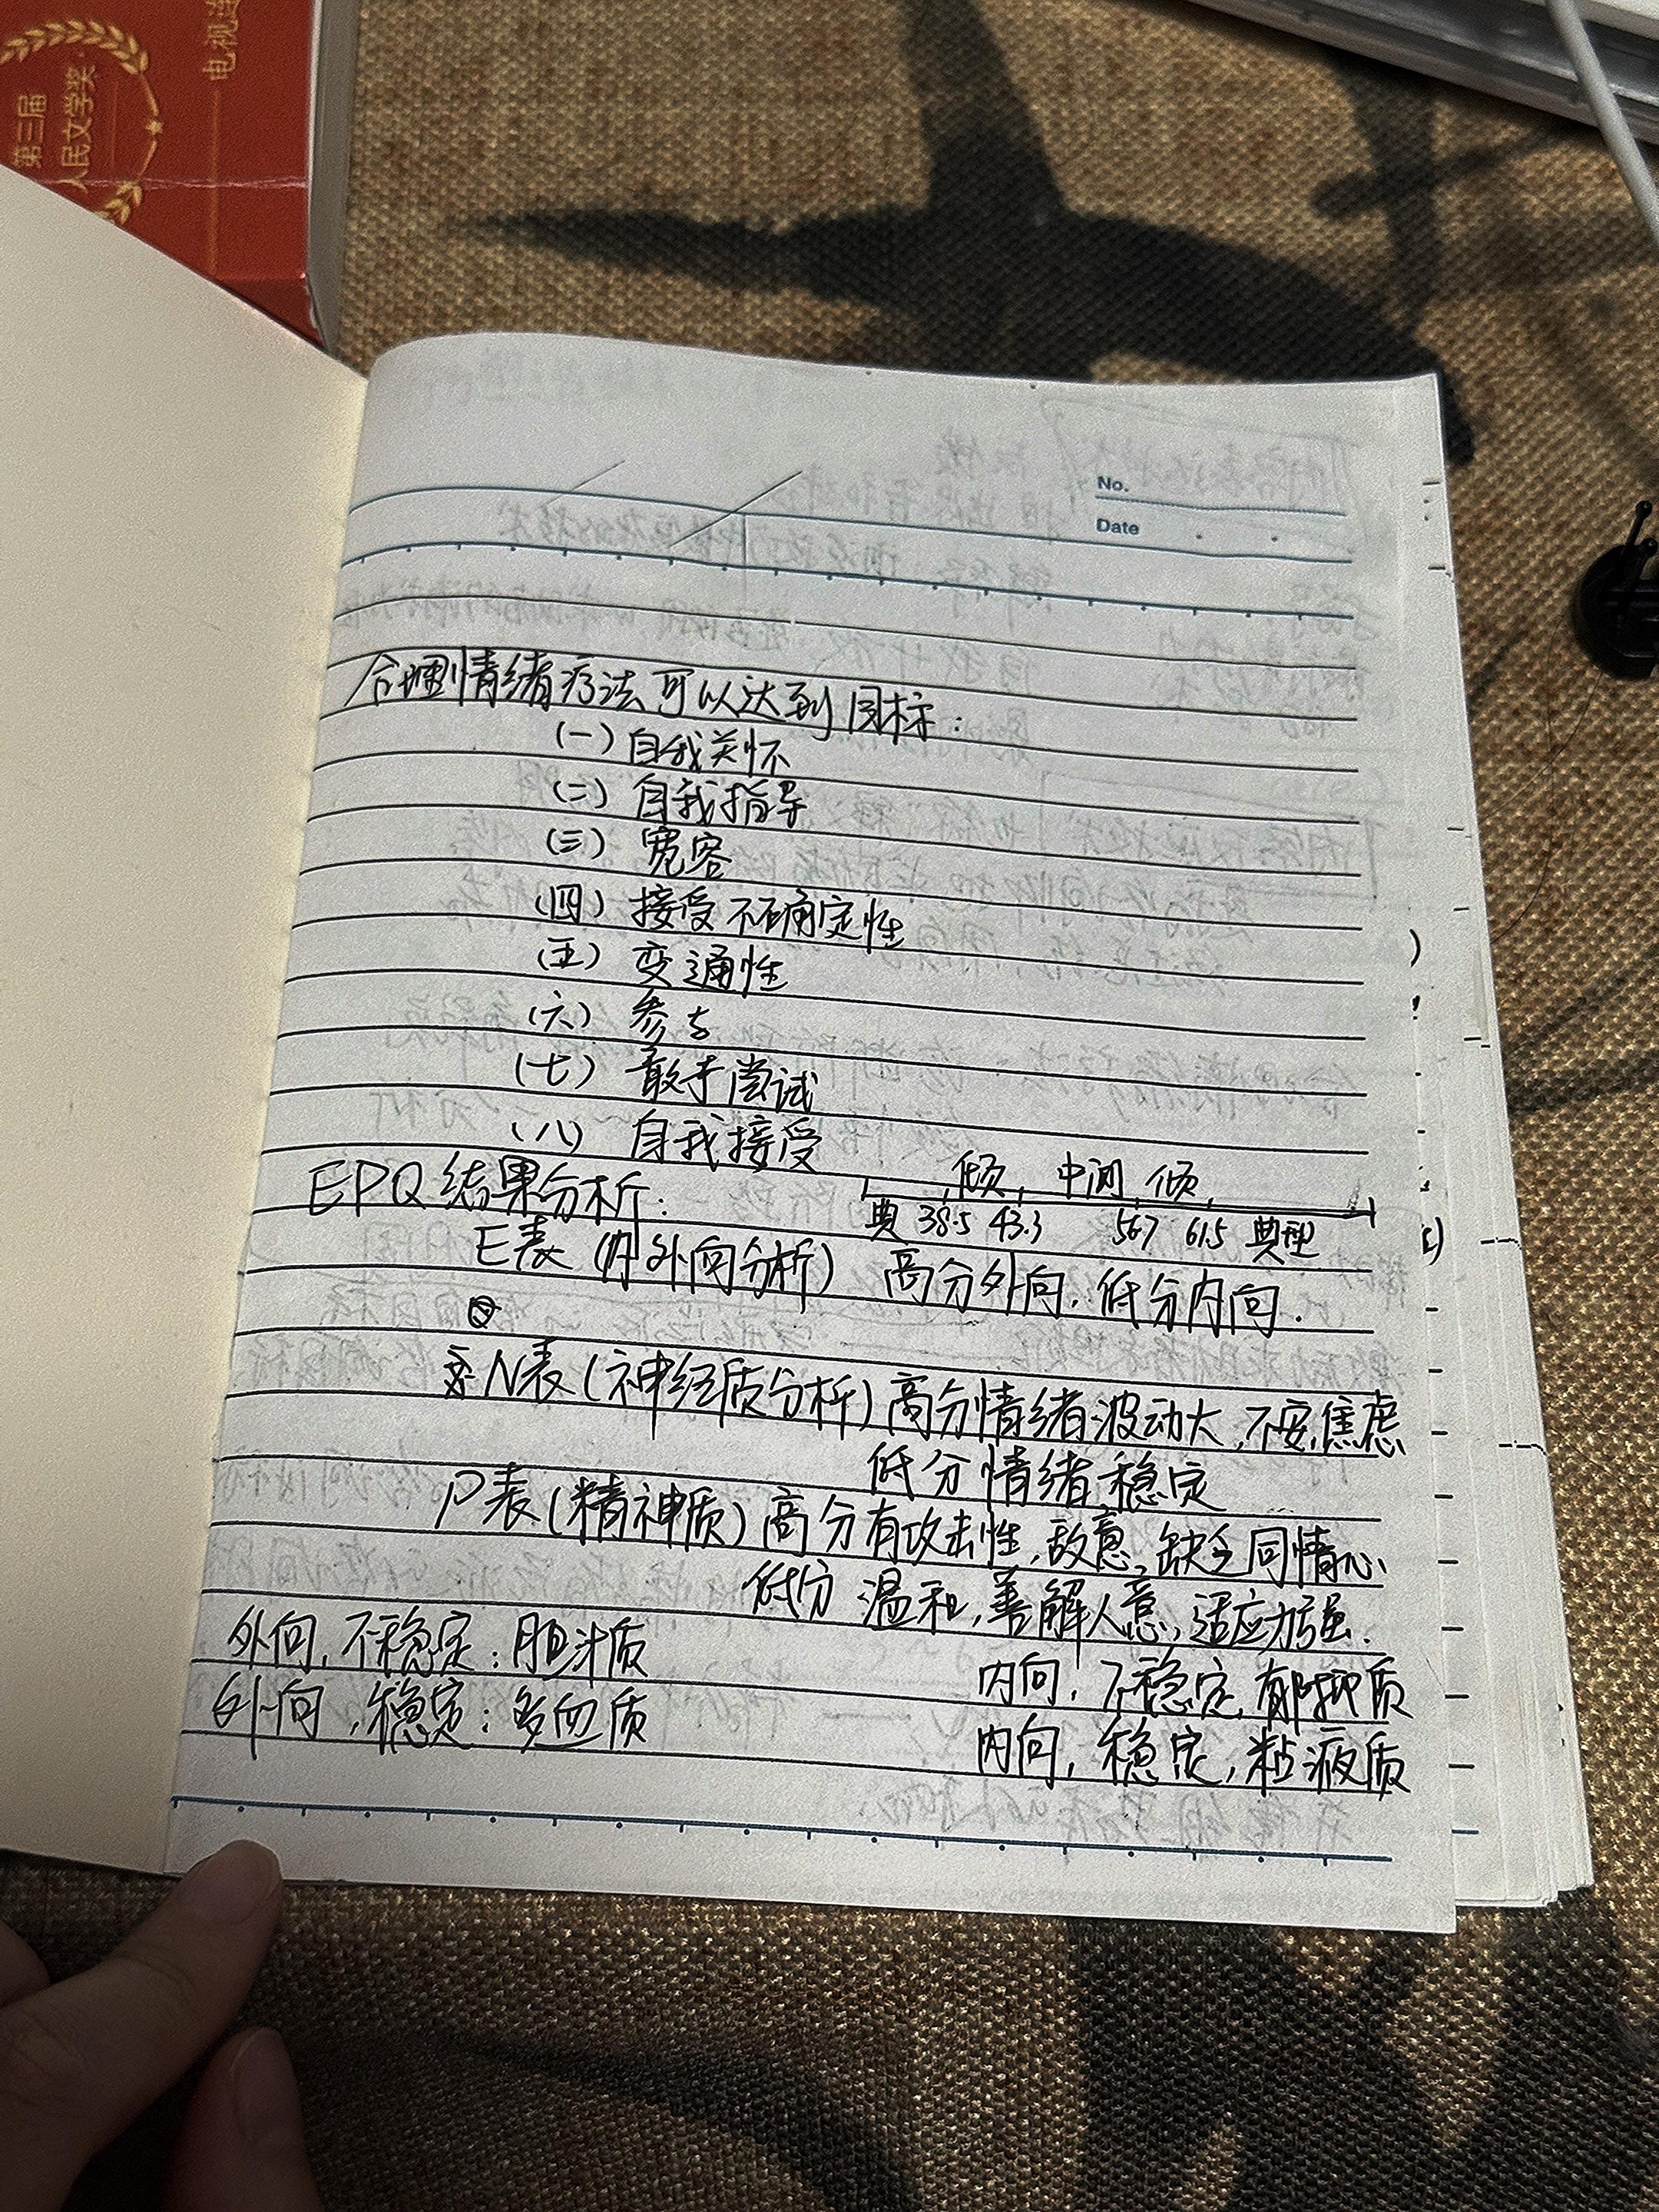 第三届
人民文学奖
电视
No.
Date
合理情绪疗法可以达到目标:
(一) 自我关怀
(二) 自我指导
(三) 宽容
(四) 接受不确定性
(五) 变通性
(六) 参与
(七) 敢于尝试
(八) 自我接受
EPQ结果分析:
倾 中间 倾
典 38.5 43.3 56.7 61.5 典型
E表 (内外向分析) 高分外向, 低分内向.
N表 (神经质分析) 高分情绪波动大, 不安, 焦虑
低分情绪稳定
P表 (精神质) 高分有攻击性, 敌意, 缺乏同情心
低分 温和, 善解人意, 适应力强.
外向, 不稳定: 胆汁质
内向, 不稳定, 郁抑质
外向, 稳定: 多血质
内向, 稳定, 粘液质